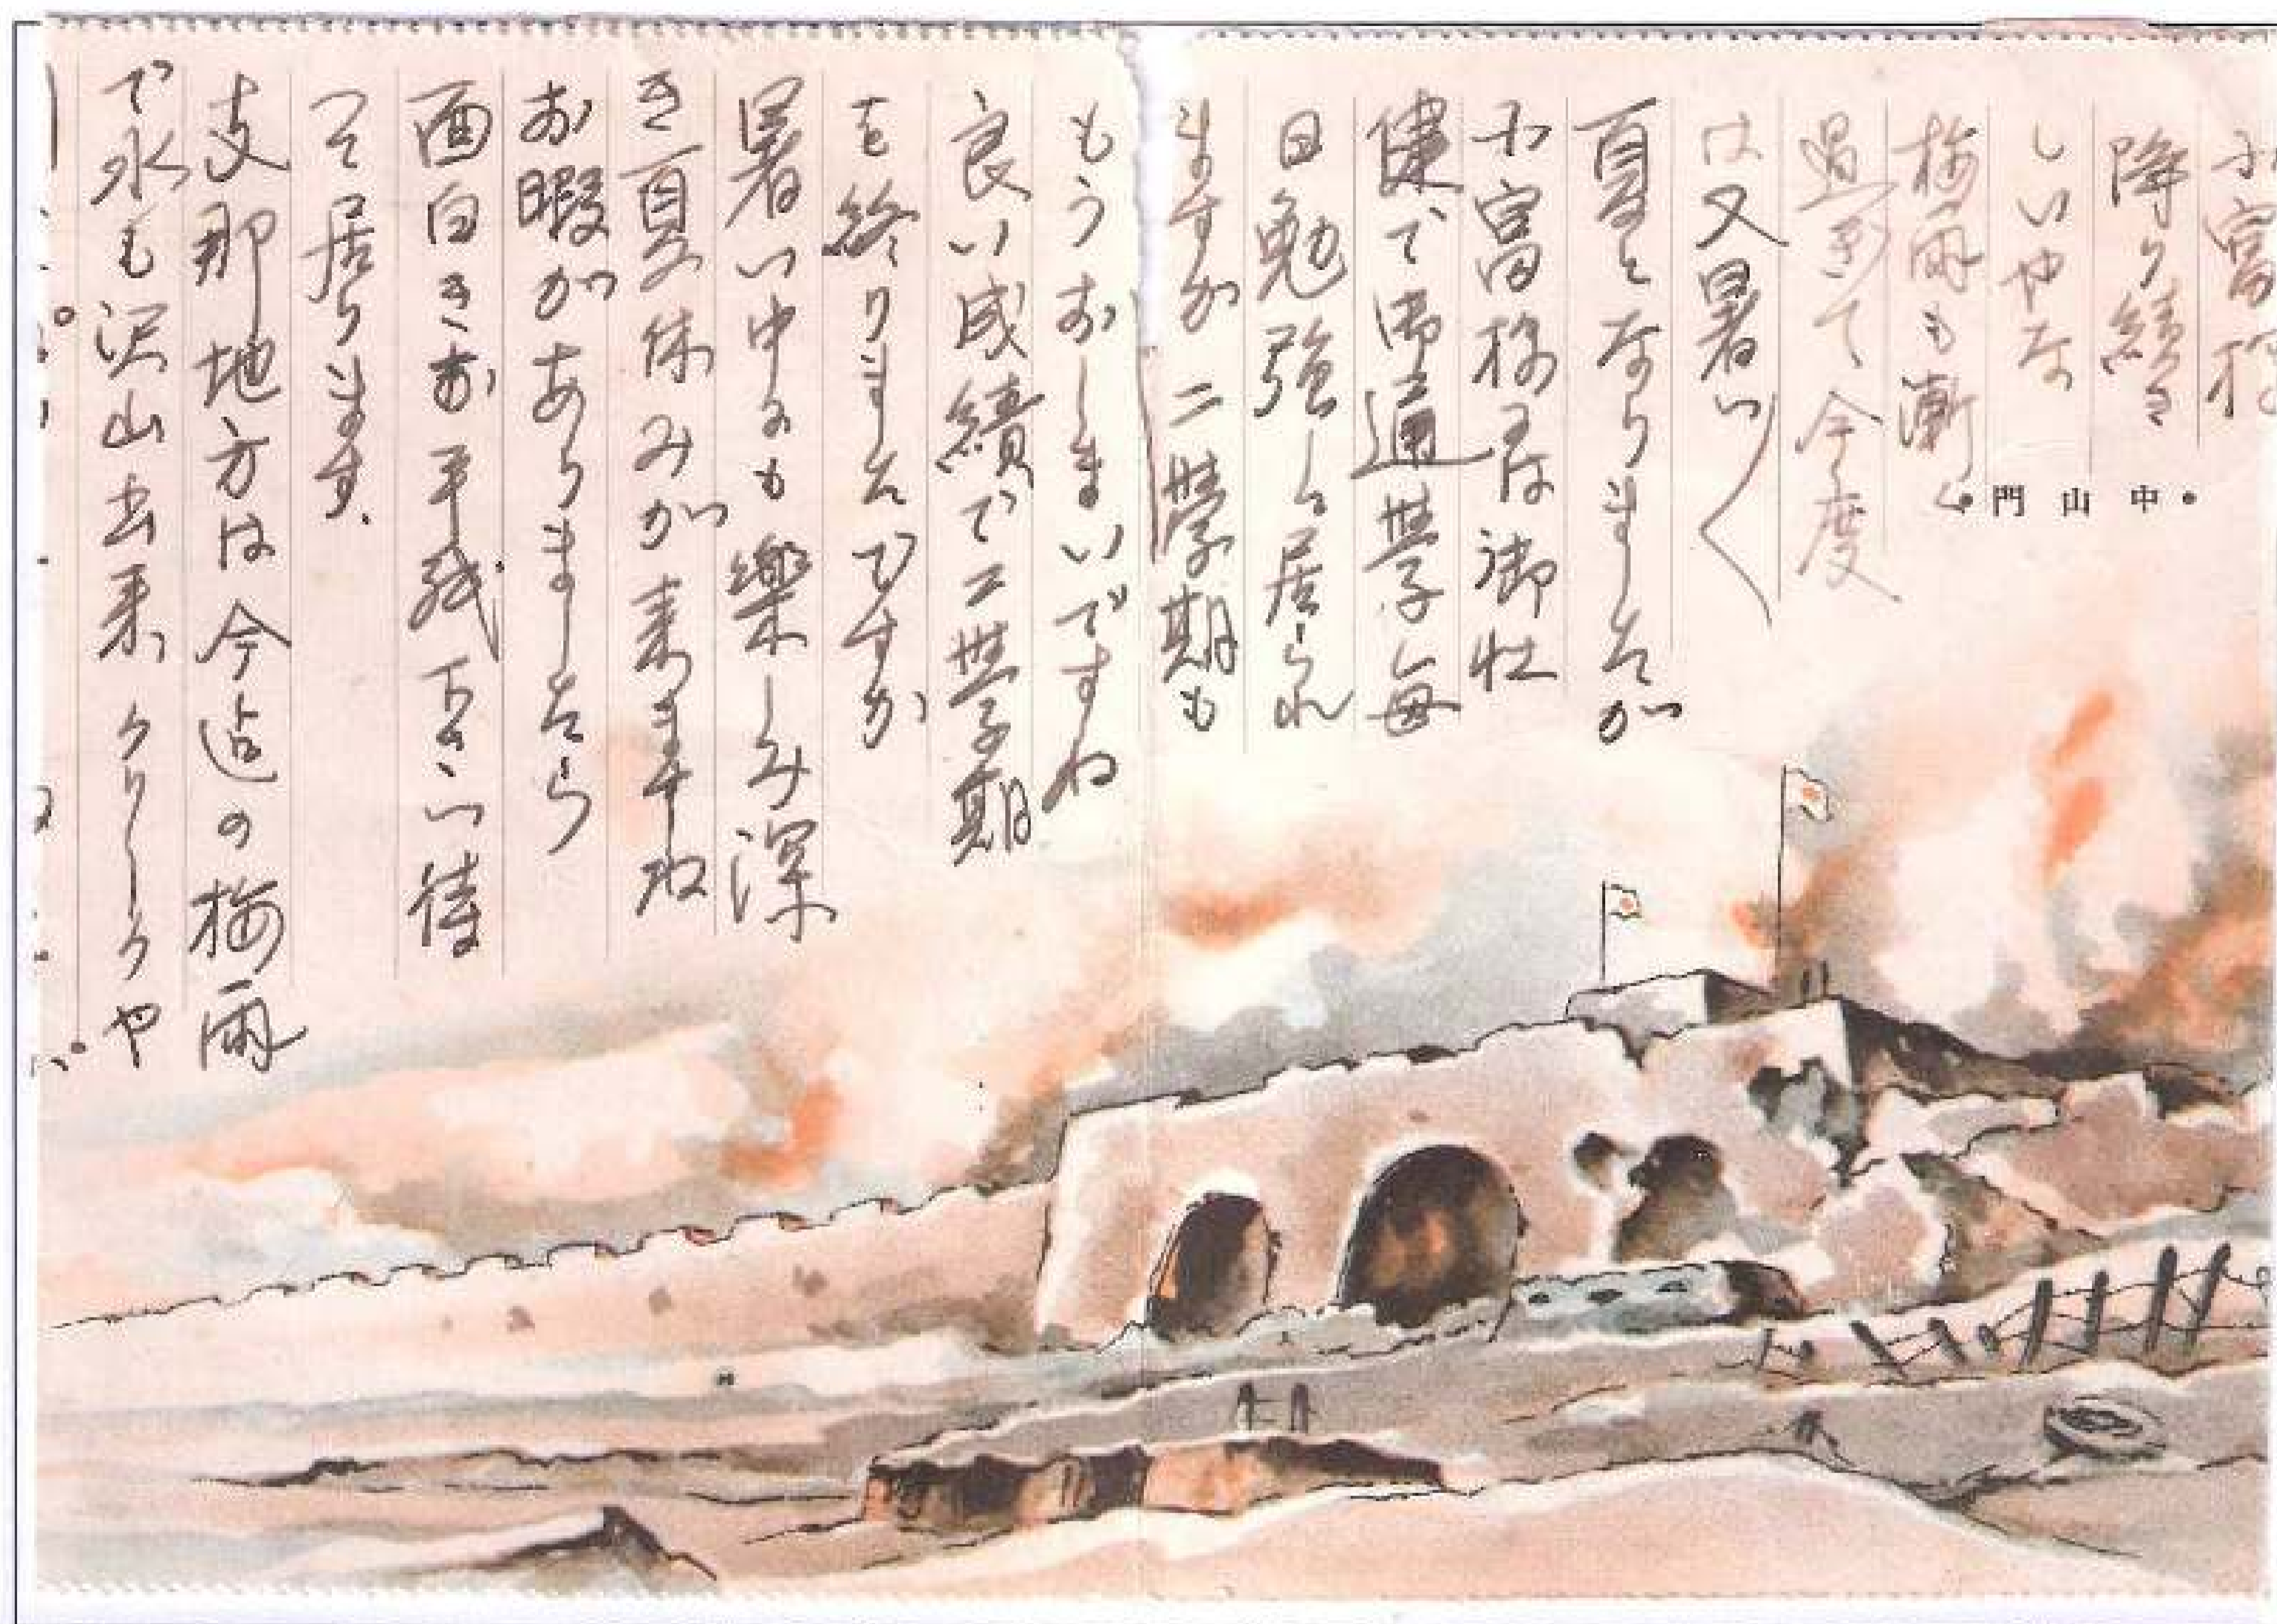 小富様
降り続き
しいやな
梅雨も漸く
過ぎて今度
は又暑い〱
夏となりましたが
小富様には御壮
健で御通学毎
日勉強し居られ
ますか二学期も
もうおしまいですね
良い成績で二学期
を終りましたですか
暑い中にも楽しみ深
き夏休みが来ますね
お暇がありましたら
面白きお手紙下さい待
つて居ります、
支那地方は今迄の梅雨
で水も沢山出来クリークや
・中山門・